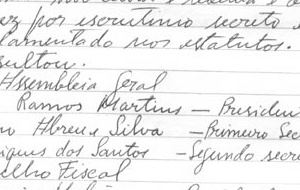 por escrutinio secreto e
lamentado nos estatutos.
sultou.
Assembleia Geral
Ramos Martins — Presiden
Abreu e Silva — Primeiro Sec
iques dos Santos — Segundo secre
elho Fiscal